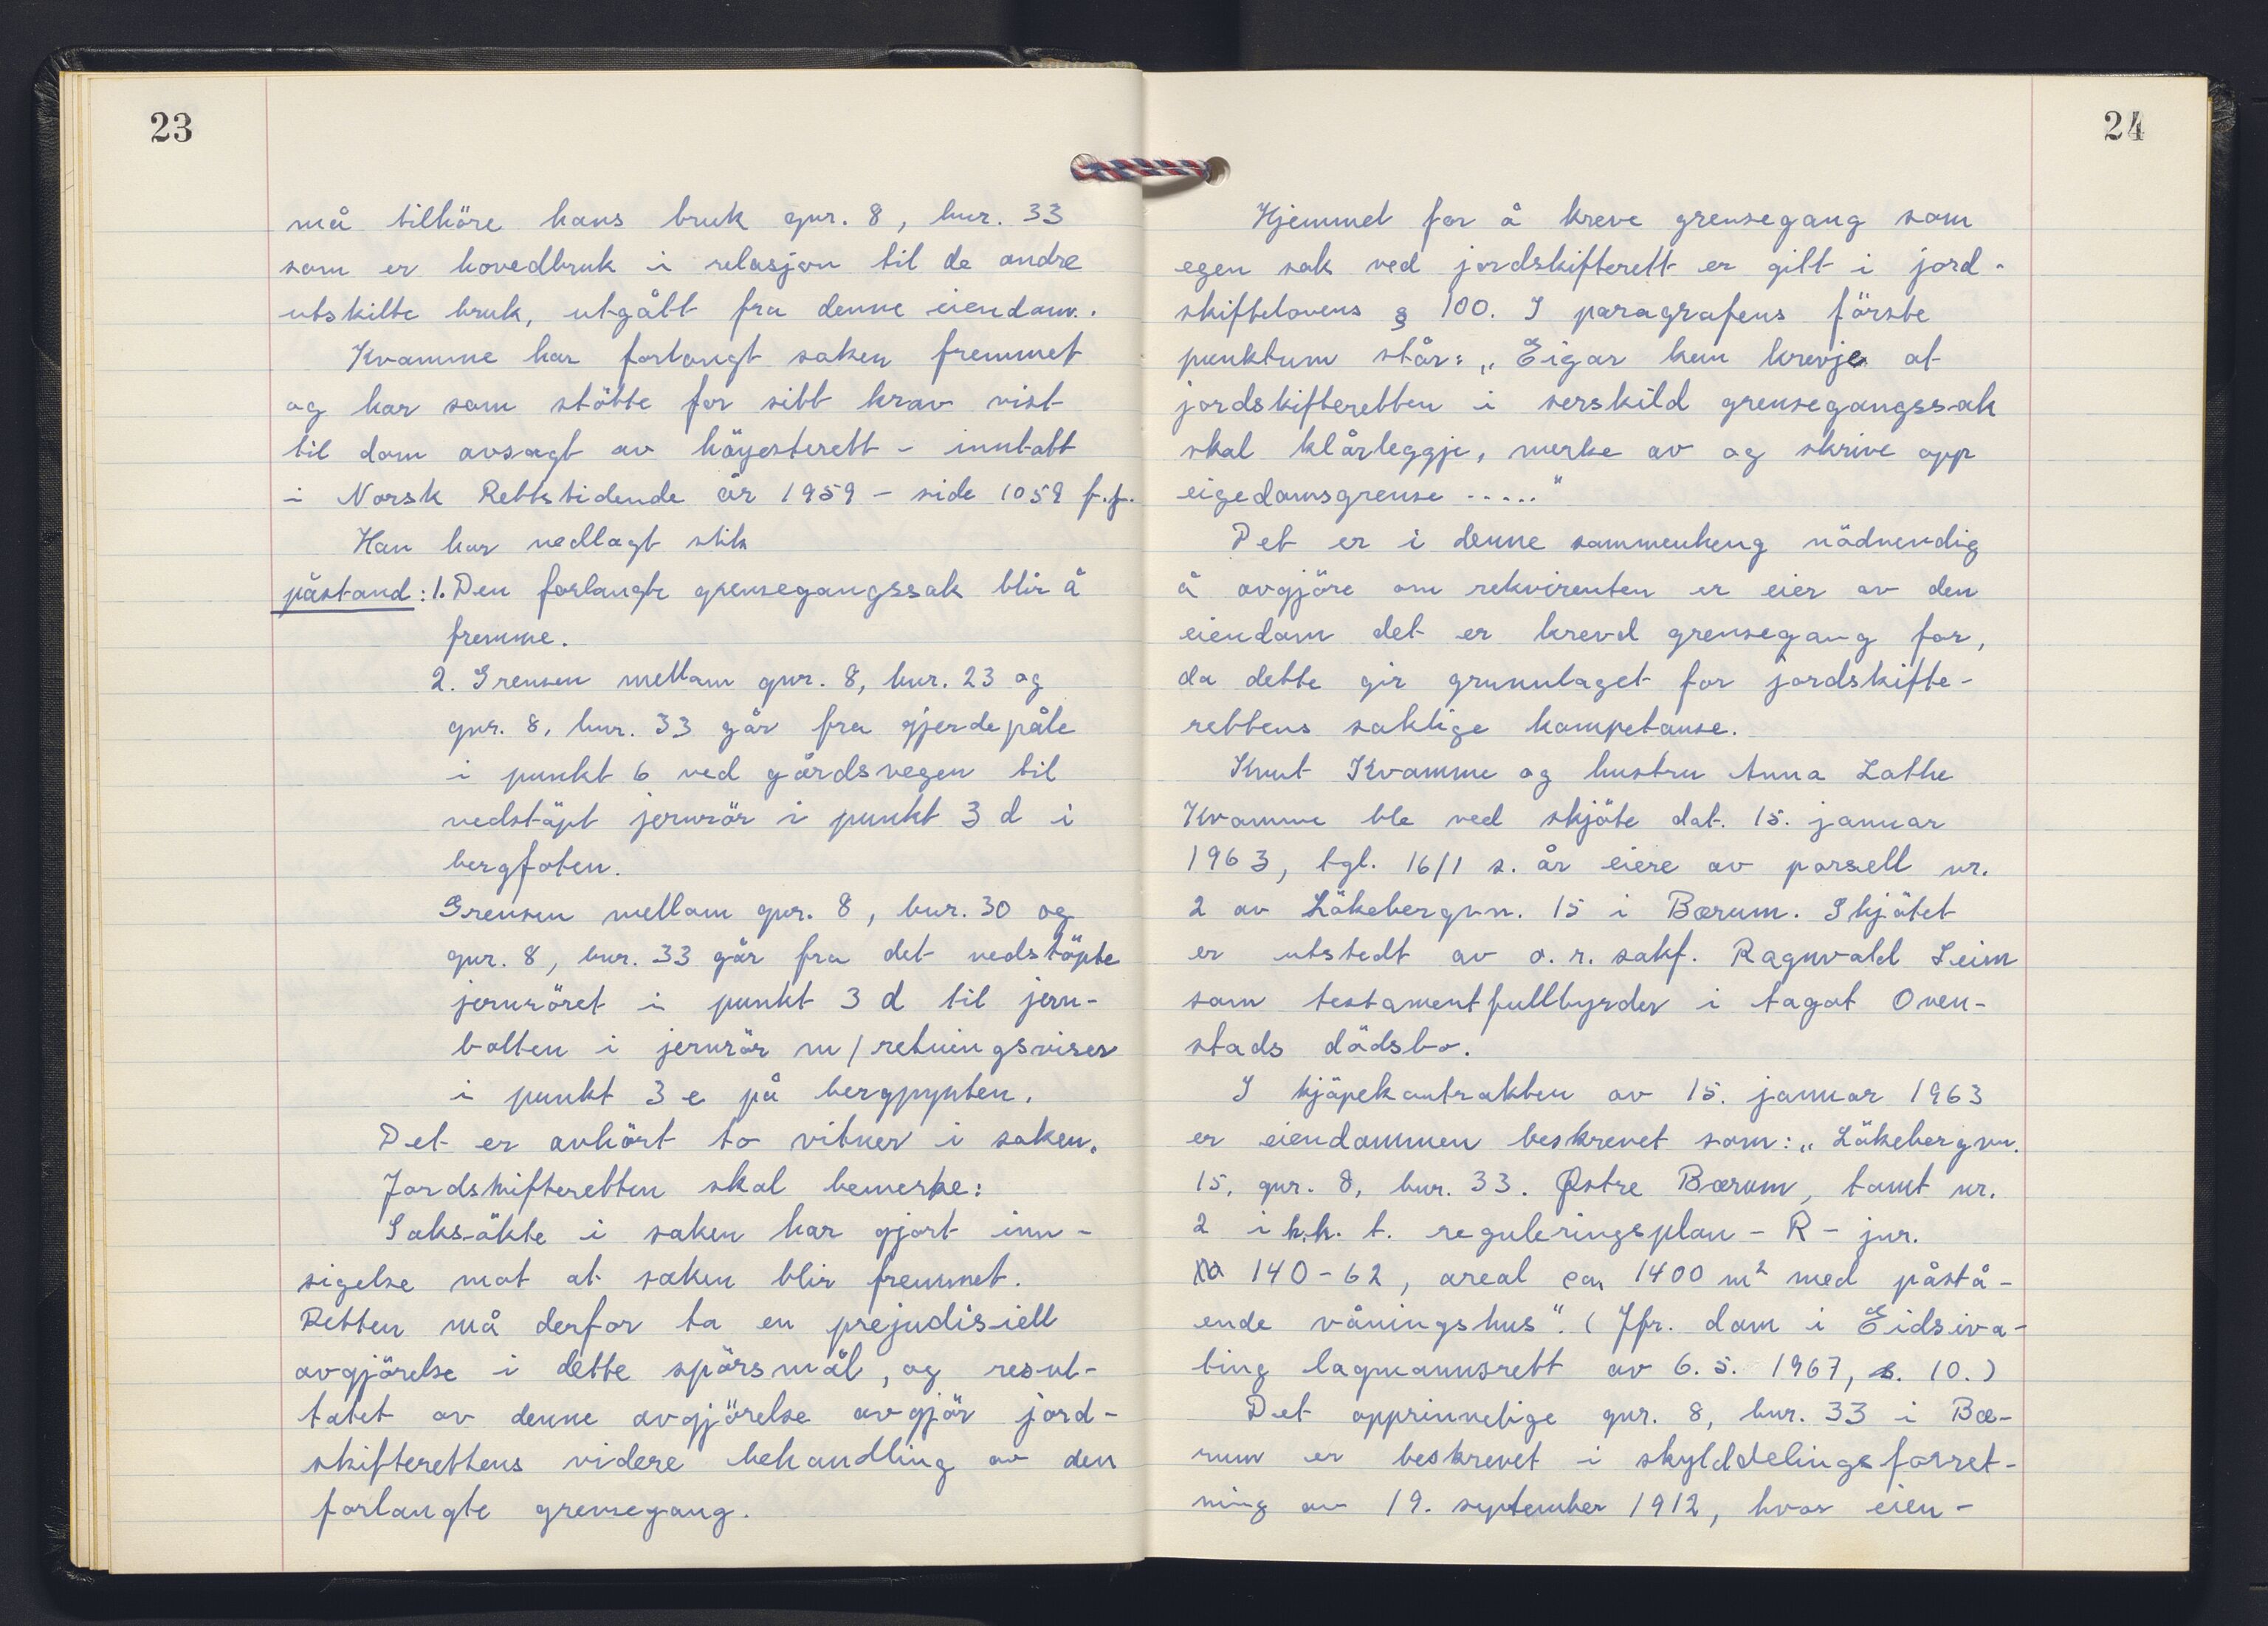 23
må tilhöre hans bruk gnr. 8, bnr. 33
som er hovedbruk i relasjon til de andre
utskilte bruk, utgått fra denne eiendom.
Kvamme har forlangt saken fremmet
og har som stötte for sitt krav vist
til dom avsagt av höyesterett - inntatt
i Norsk Rettstidende år 1959 - side 1059 f.f.
Han har nedlagt slik
påstand: 1. Den forlangte grensegangssak blir å
fremme.
2. Grensen mellom gnr. 8, bnr. 23 og
gnr. 8, bnr. 33 går fra gjerdepåle
i punkt 6 ved gårdsvegen til
nedstöpt jernrör i punkt 3 d i
bergfoten.
Grensen mellom gnr. 8, bnr. 30 og
gnr. 8, bnr. 33 går fra det nedstöpte
jernröret i punkt 3 d til jern-
bolten i jernrör m/retningsviser
i punkt 3 e på bergpynten.
Det er avhört to vitner i saken.
Jordskifteretten skal bemerke:
Saksökte i saken har gjort inn-
sigelse mot at saken blir fremmet.
Retten må derfor ta en prejudisiell
avgjörelse i dette spörsmål, og resul-
tatet av denne avgjörelse avgjör jord-
skifterettens videre behandling av den
forlangte grensegang.
24
Hjemmel for å kreve grensegang som
egen sak ved jordskifterett er gitt i jord-
skiftelovens § 100. I paragrafens förste
punktum står: „Eigar kan krevje at
jordskifteretten i serskild grensegangssak
skal klårleggje, merke av og skrive opp
eigedomsgrense ....."
Det er i denne sammenheng nödvendig
å avgjöre om rekvirenten er eier av den
eiendom det er krevd grensegang for,
da dette gir grunnlaget for jordskifte-
rettens saklige kompetanse.
Knut Kvamme og hustru Anna Lothe
Kvamme ble ved skjöte dat. 15. januar
1963, tgl. 16/1 s. år eiere av parsell nr.
2 av Lökebergvn. 15 i Bærum. Skjötet
er utstedt av o.r. sakf. Ragnvald Seim
som testamentfullbyrder i tagat Oven-
stads dödsbo.
I kjöpekontrakten av 15. januar 1963
er eiendommen beskrevet som: „Lökebergvn.
15, gnr. 8, bnr. 33. Østre Bærum, tomt nr.
2 i h.h. t. reguleringsplan - R - jnr.
140-62, areal ca. 1400 m² med påstå-
ende våningshus". (Jfr. dom i Eidsiva-
ting lagmannsrett av 6. 5. 1967, s. 10.)
Det opprinnelige gnr. 8, bnr. 33 i Bæ-
rum er beskrevet i skylddelingsforret-
ning av 19. september 1912, hvor eien-